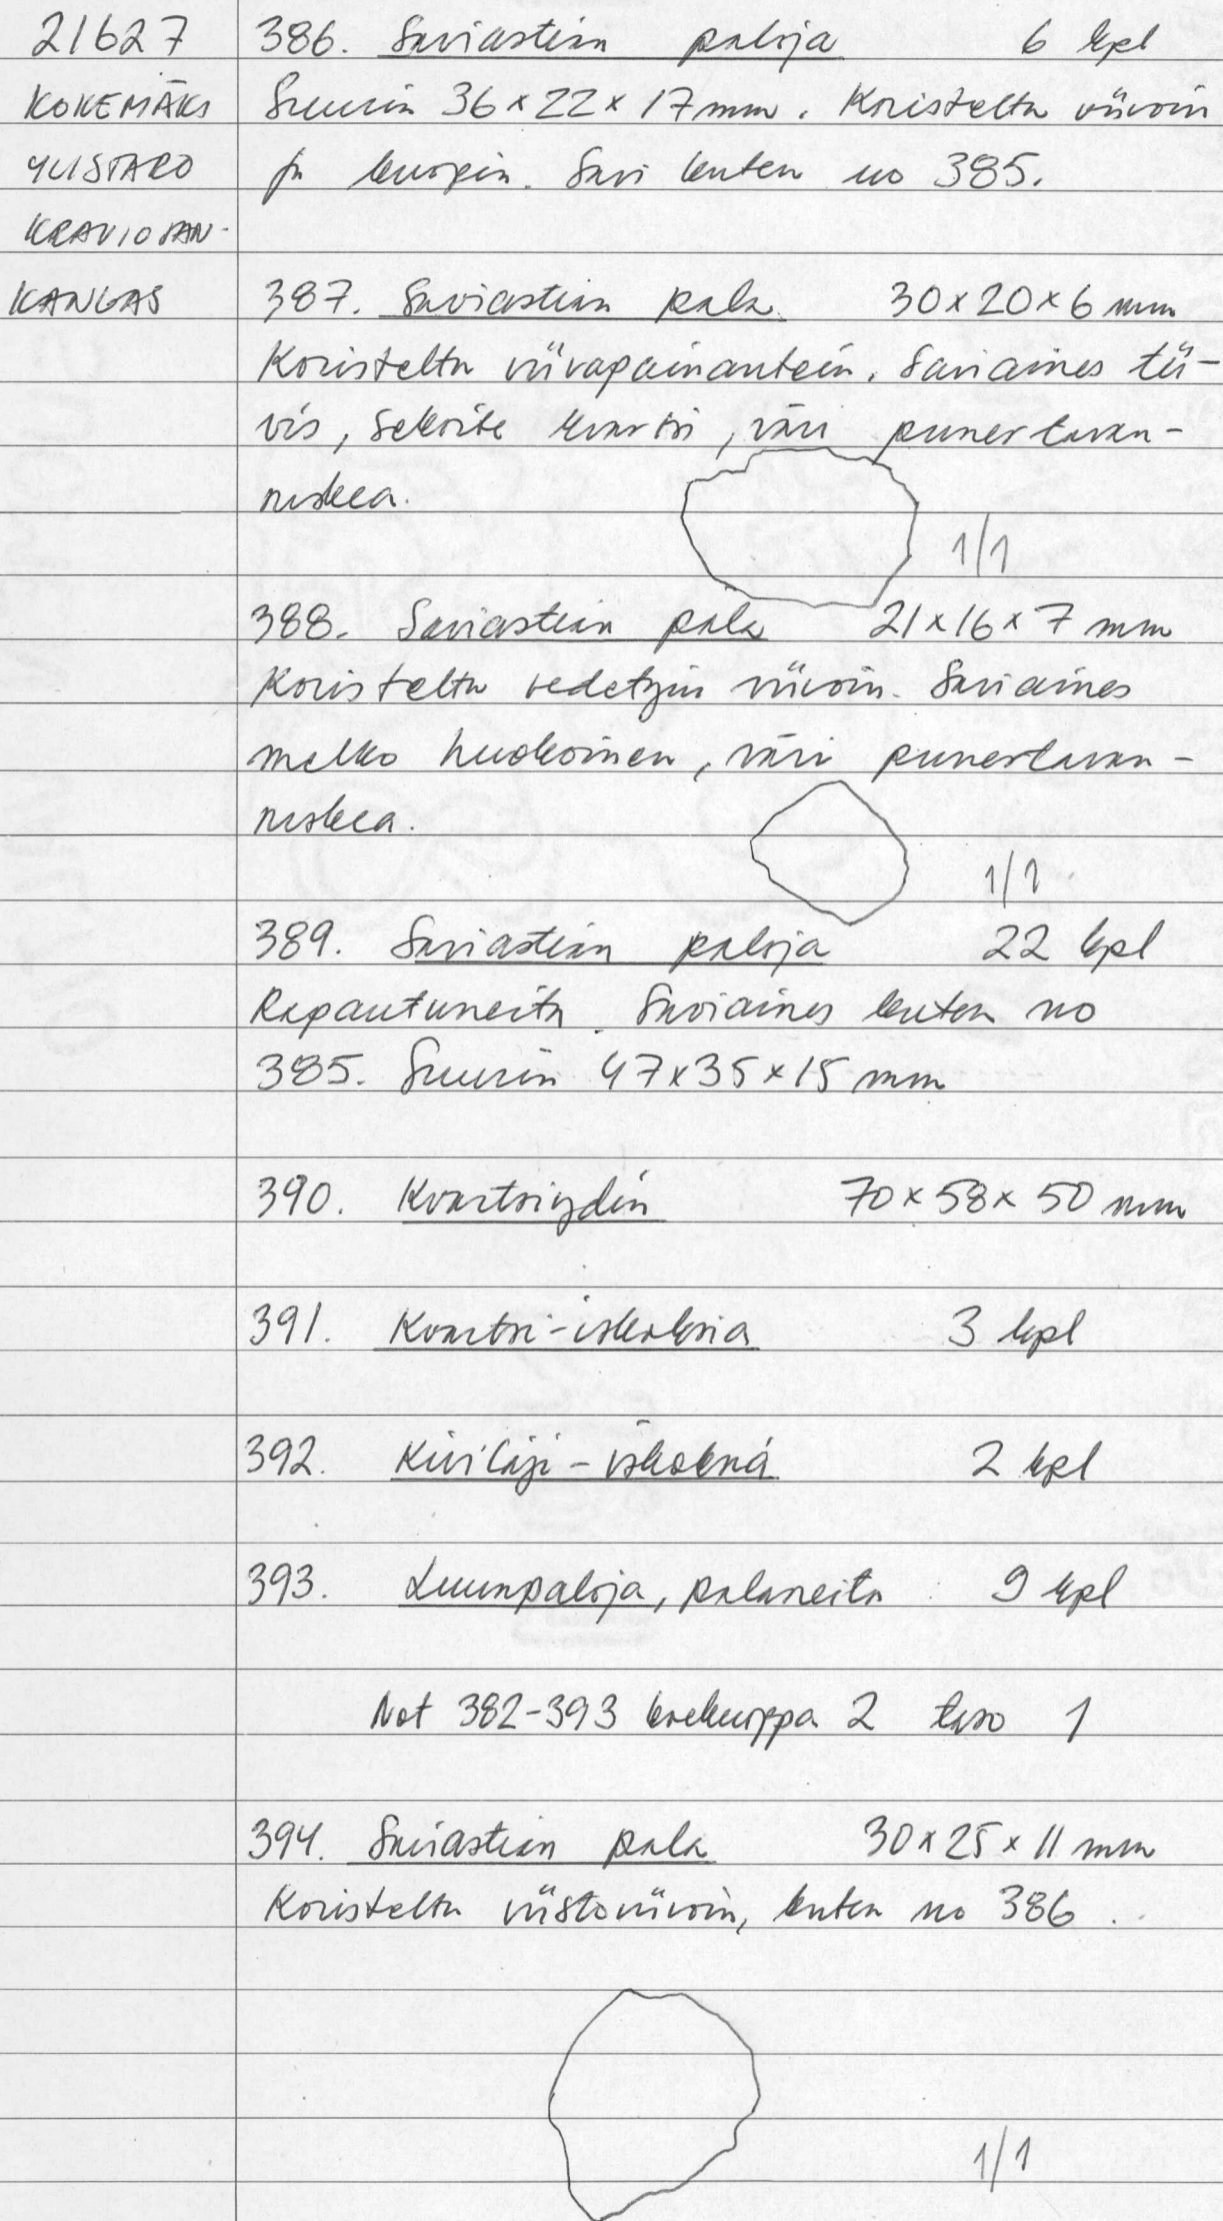 21627
KOKEMÄKI
YLISTARO
KRAVIOJAN-
KANGAS
386. Saviastian paloja 6 kpl
Suurin 36x22x17mm. Koristeltu viivoin
ja kuopin. Savi kuten no 385.
387. Saviastian pala 30x20x6 mm
Koristeltu viivapainantein. Saviaines tii-
vis, sekoite kvartsi, väri punertavan-
ruskea.
1/1
388. Saviastian pala 21x16x7 mm
Koristeltu vedetyin viivoin. Saviaines
melko huokoinen, väri punertavan-
ruskea.
1/1
389. Saviastian paloja 22 kpl
Rapautuneita. Saviaines kuten no
385. Suurin 47x35x15 mm
390. Kvartsiydin 70x58x50 mm
391. Kvartsi-iskoksia 3 kpl
392. Kivilaji-iskoksia 2 kpl
393. Luunpaloja, palaneita 9 kpl
Not 382-393 koekuoppa 2 taso 1
394. Saviastian pala 30x25x11 mm
Koristeltu viistoviivoin, kuten no 386.
1/1